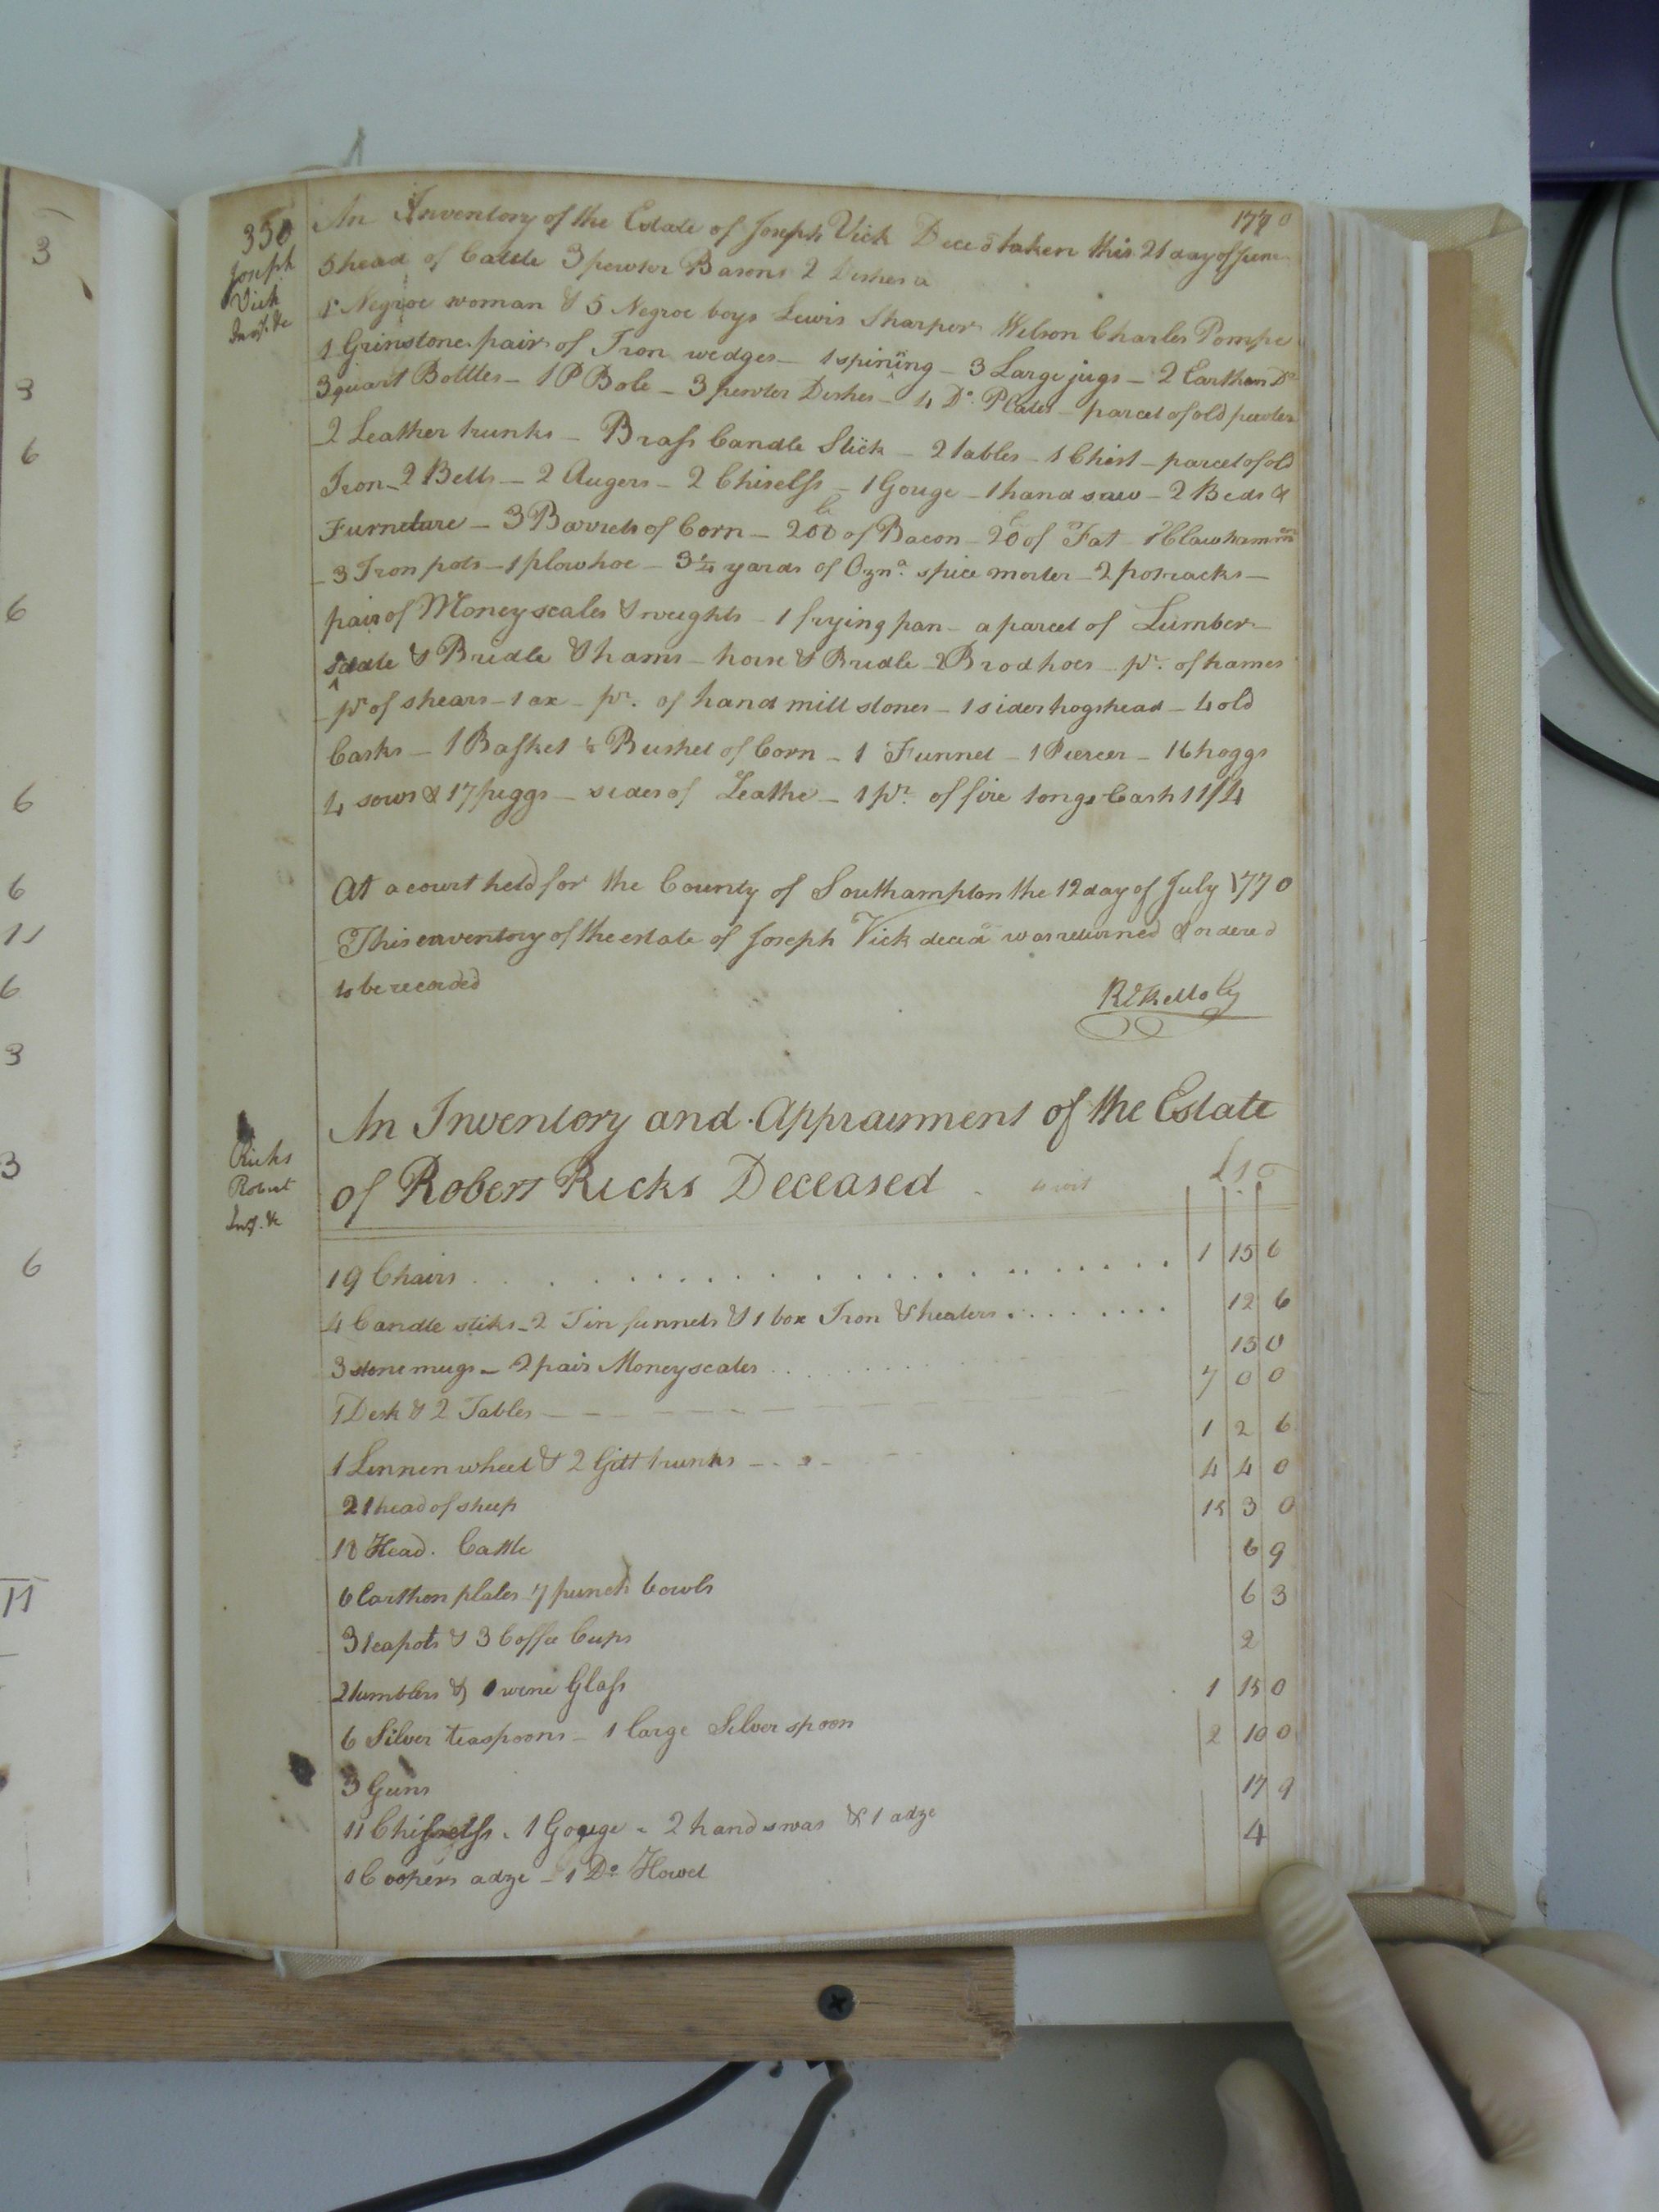 350
Joseph
Vick
Inv.t &c
1770
An Inventory of the Estate of Joseph Vick Decd taken this 21 day of June
5 head of Cattle 3 pewter Basons 2 Dishes a
1 Negroe woman & 5 Negroe boys Lewis Sharper Wilson Charles Pompe
1 Grinstone pair of Iron wedges - 1 spining - 3 Large jugs - 2 Earthen Do
3 quart Bottles - 1 P Bole - 3 pewter Dishes - 4 Do. Plates - parcel of old pewter
2 Leather trunks - Brass Candle Stick - 2 tables - 1 Chist - parcel of old
Iron - 2 Bells - 2 Augers - 2 Chiselss - 1 Gouge - 1 hand saw - 2 Beds &
Furneture - 3 Barrels of Corn - 200 lb of Bacon - 20 lb of Fat 1 Clawhammer
- 3 Iron pots - 1 plowhoe - 3 1/4 yards of Ozna. spice morter - 2 potracks -
pair of Money scales & weights - 1 frying pan - a parcel of Lumber -
Sadle & Bridle & hams - horse & Bridle - 2 Brodhoes - pr. of hames
- pr of shears - 1 ax - pr. of hand mill stones - 1 sider hogshead - 4 old
Casks - 1 Basket & Bushel of Corn - 1 Funnel - 1 Piercer - 16 hoggs
4 sows & 17 piggs - sides of Leathe - 1 pr. of fire tongs Cash 11/4
At a court held for the County of Southampton the 12 day of July 1770
This enventory of the estate of Joseph Vick decd was returned & ordered
to be recorded
R Kello Cy
Ricks
Robert
Inv. &c
An Inventory and Appraisment of the Estate
of Robert Ricks Deceased to wit £ s d
19 Chairs 1 15 6
4 Candle stiks - 2 Tin funnels & 1 box Iron & heaters 12 6
3 stone mugs - 2 pair Money scales 15 0
1 Desk & 2 Tables 7 0 0
1 Linnen wheel & 2 Gilt trunks 1 2 6
21 head of sheep 4 4 0
18 Head. Cattle 15 3 0
6 Earthen plates 7 punch bowls 6 9
3 teapots & 3 Coffee Cups 6 3
2 tumblers & 1 wine Glass 2
6 Silver teaspoons - 1 large Silver spoon 1 15 0
3 Guns 2 10 0
11 Chisselss - 1 Gouge - 2 hand swas & 1 adze 17 9
1 Coopers adze - 1 Do Howel 4
3
3
6
6
6
6
11
6
3
3
6
11